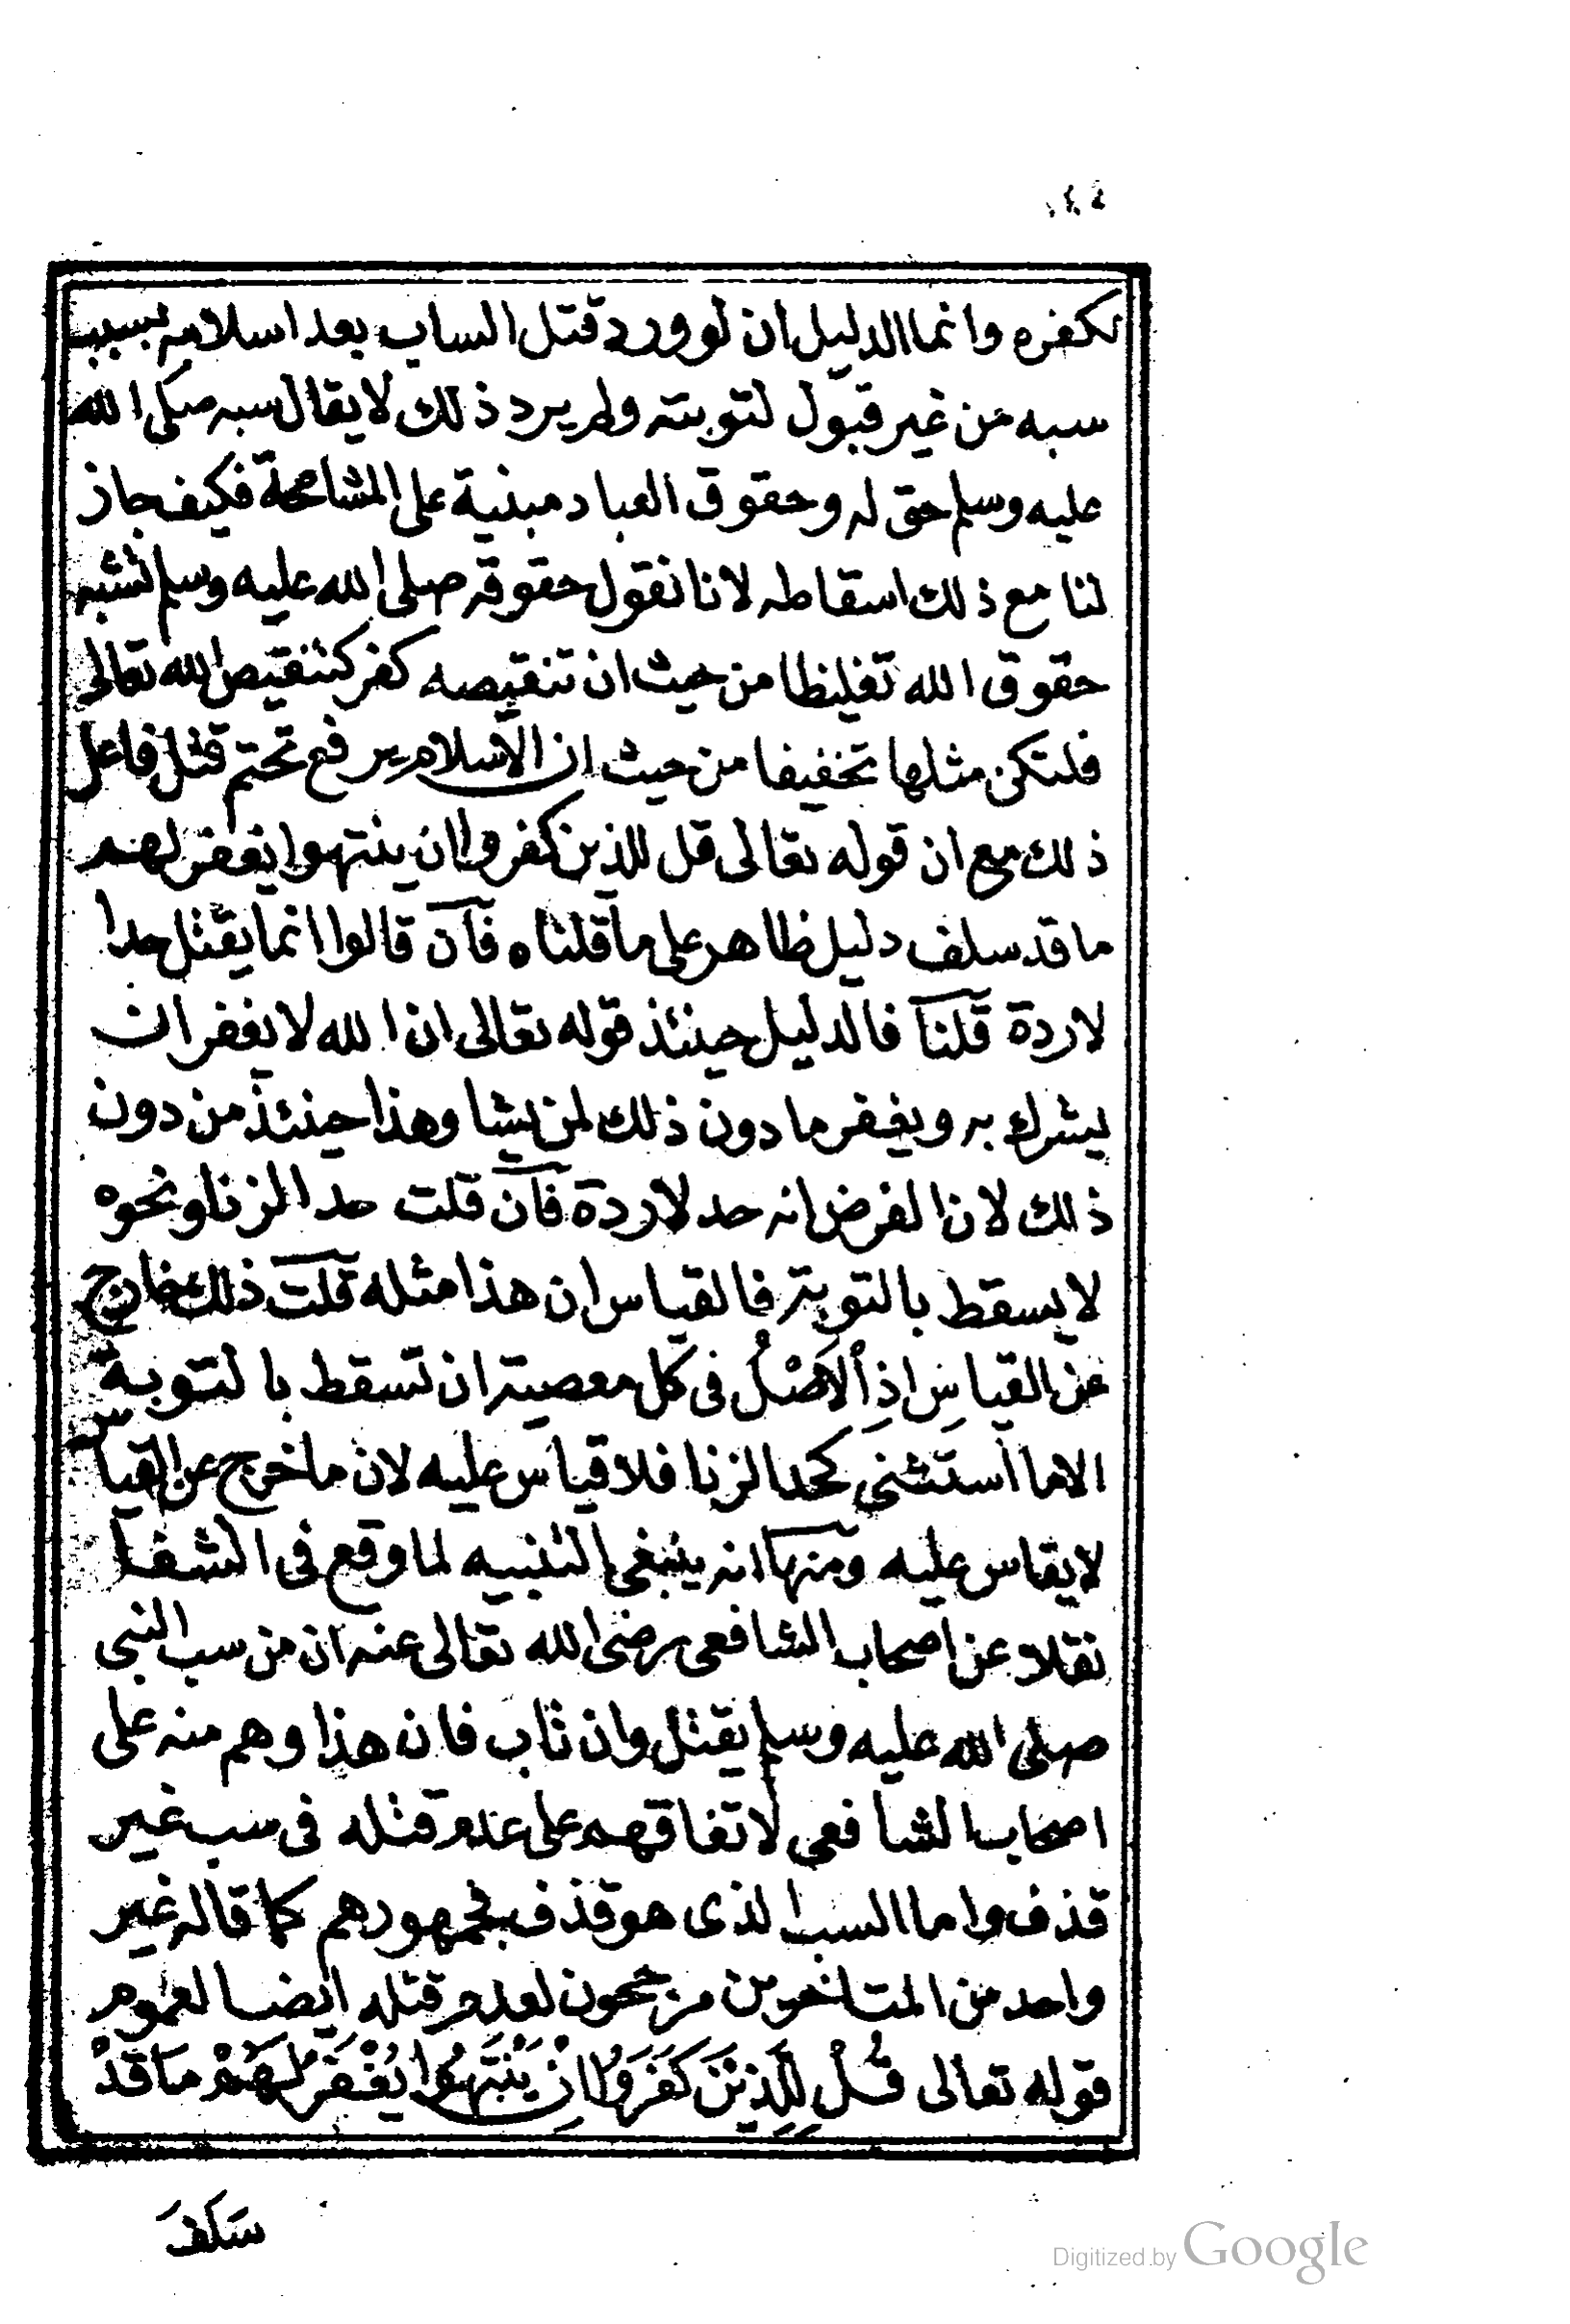 لكفره وانما الدليل ان لو ورد قتل الساب بعد اسلامه بسبب
سبه من غير قبول لتوبته ولم يرد ذلك لا يقال سبه صلى الله
عليه وسلم حق له وحقوق العباد مبنية على المشاححة فكيف جاز
لنا مع ذلك اسقاطه لانا نقول حقوقه صلى الله عليه وسلم تشبه
حقوق الله تغليظا من حيث ان تنقيصه كفر كتنقيص الله تعالى
فلتكن مثلها تخفيفا من حيث ان الاسلام يرفع تحتم قتل فاعل
ذلك مع ان قوله تعالى قل للذين كفروا ان ينتهوا يغفر لهم
ما قد سلف دليل ظاهر على ما قلناه فان قالوا انما يقتل حدا
لا ردة قلنا فالدليل حينئذ قوله تعالى ان الله لا يغفر ان
يشرك به ويغفر ما دون ذلك لمن يشا وهذا حينئذ من دون
ذلك لان الفرض انه حد لا ردة فان قلت حد الزنا ونحوه
لا يسقط بالتوبة فالقياس ان هذا مثله قلت ذلك خارج
عن القياسِ اذِ اْلاَصْلُ فى كل معصية ان تسقط بالتوبة
الا ما استثنى كحد الزنا فلا قياس عليه لان ما خرج عن القياس
لا يقاس عليه ومنها انه ينبغى التنبيه لما وقع فى الشفا
نقلا عن اصحاب الشافعى رضى الله تعالى عنه ان من سب النبى
صلى الله عليه وسلم يقتل وان تاب فان هذا وهم منه على
اصحاب الشافعى لاتفاقهم على عدم قتله فى سب غير
قذف واما السب الذى هو قذف فجمهورهم كما قاله غير
واحد من المتاخرين مرجحون لعدم قتله ايضا لعموم
قوله تعالى قُلْ لِلَّذِيْنَ كَفَرَوُا اِنْ يَنْتَهُوا يُغْفَرْ لَهُمْ مَا قَدْ
سَلَفَ
Digitized by Google